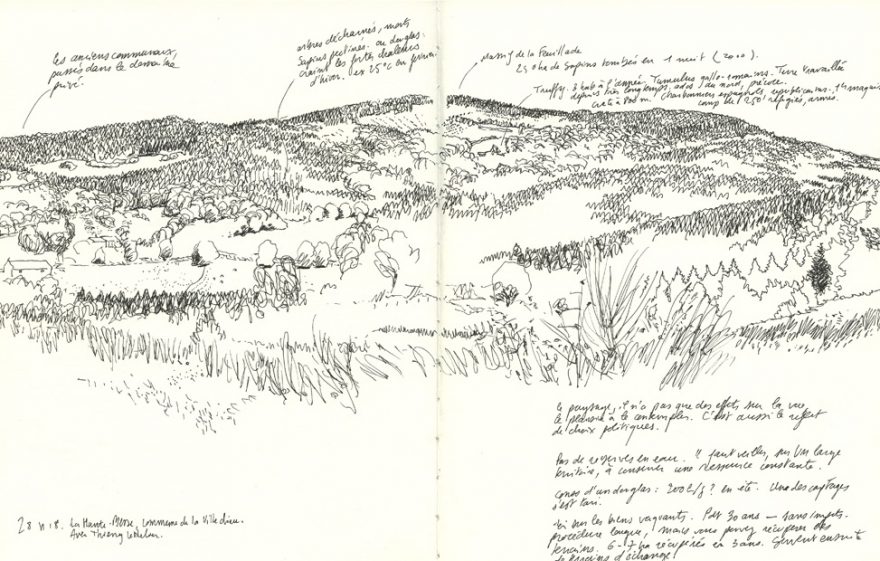 Les anciens communaux,
passés dans le domaine
privé.
arbres déchaînés, morts
Sapins pectinés. ou douglas.
craint les fortes chaleurs
d'hiver. Les 25°C en février.
Massif de la Feuillade
250ha de Sapins tombés en 1 nuit (2000).
Truffy. 3 hab à l'année. Tumulus gallo-romains. Terre travaillée
depuis très longtemps, ados du nord, précoce.
Crête à 800m. Charbonniers espagnols, républicains. 1 maquis
camp de 250 réfugiés, armés.
Le paysage, il n'a pas que des effets sur la vue,
le plaisir à le contempler. C'est aussi le reflet
de choix politiques.
Pas de réserves en eau. Il faut veiller, sur un large
territoire, à conserver une ressource constante.
Conso d'un douglas : 200L/j ? en été. Une des captages
s'est tari.
Loi sur les biens vacants. Post 30 ans — sans impôts.
procédure longue, mais vous pouvez récupérer des
terrains. 6-7 ha récupérés en 3 ans. Servent ensuite
de terrains d'échange !
28 VI 18. La Haute-Berse, commune de la Villedieu.
Avec Thierry